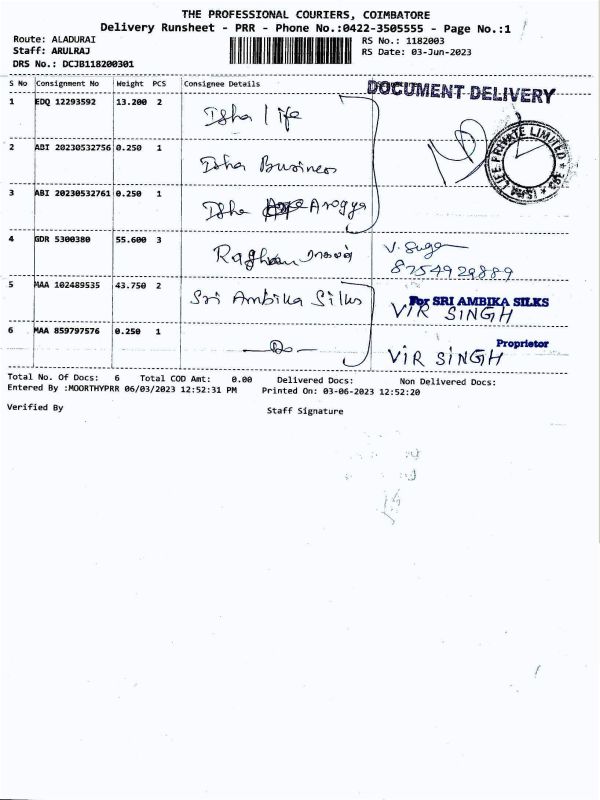 THE PROFESSIONAL COURIERS, COIMBATORE
Delivery Runsheet - PRR - Phone No.:0422-3505555 - Page No.:1
Route: ALADURAI
RS No.: 1182003
Staff: ARULRAJ
RS Date: 03-Jun-2023
DRS No.: DCJB118200301
S No Consignment No Weight PCS Consignee Details
DOCUMENT DELIVERY
1 EDQ 12293592 13.200 2 Isha Life
LIFE PRIVATE LIMITED
2 ABI 20230532756 0.250 1 Isha Business
3 ABI 20230532761 0.250 1 Isha Arogya
4 GDR 5300380 55.600 3 Raghavan
V. Suga
8754929889
5 MAA 102489535 43.750 2 Sri Ambika Silks
For SRI AMBIKA SILKS
VIR SINGH
6 MAA 859797576 0.250 1 Do
Proprietor
VIR SINGH
Total No. Of Docs: 6 Total COD Amt: 0.00 Delivered Docs: Non Delivered Docs:
Entered By :MOORTHYPRR 06/03/2023 12:52:31 PM Printed On: 03-06-2023 12:52:20
Verified By
Staff Signature